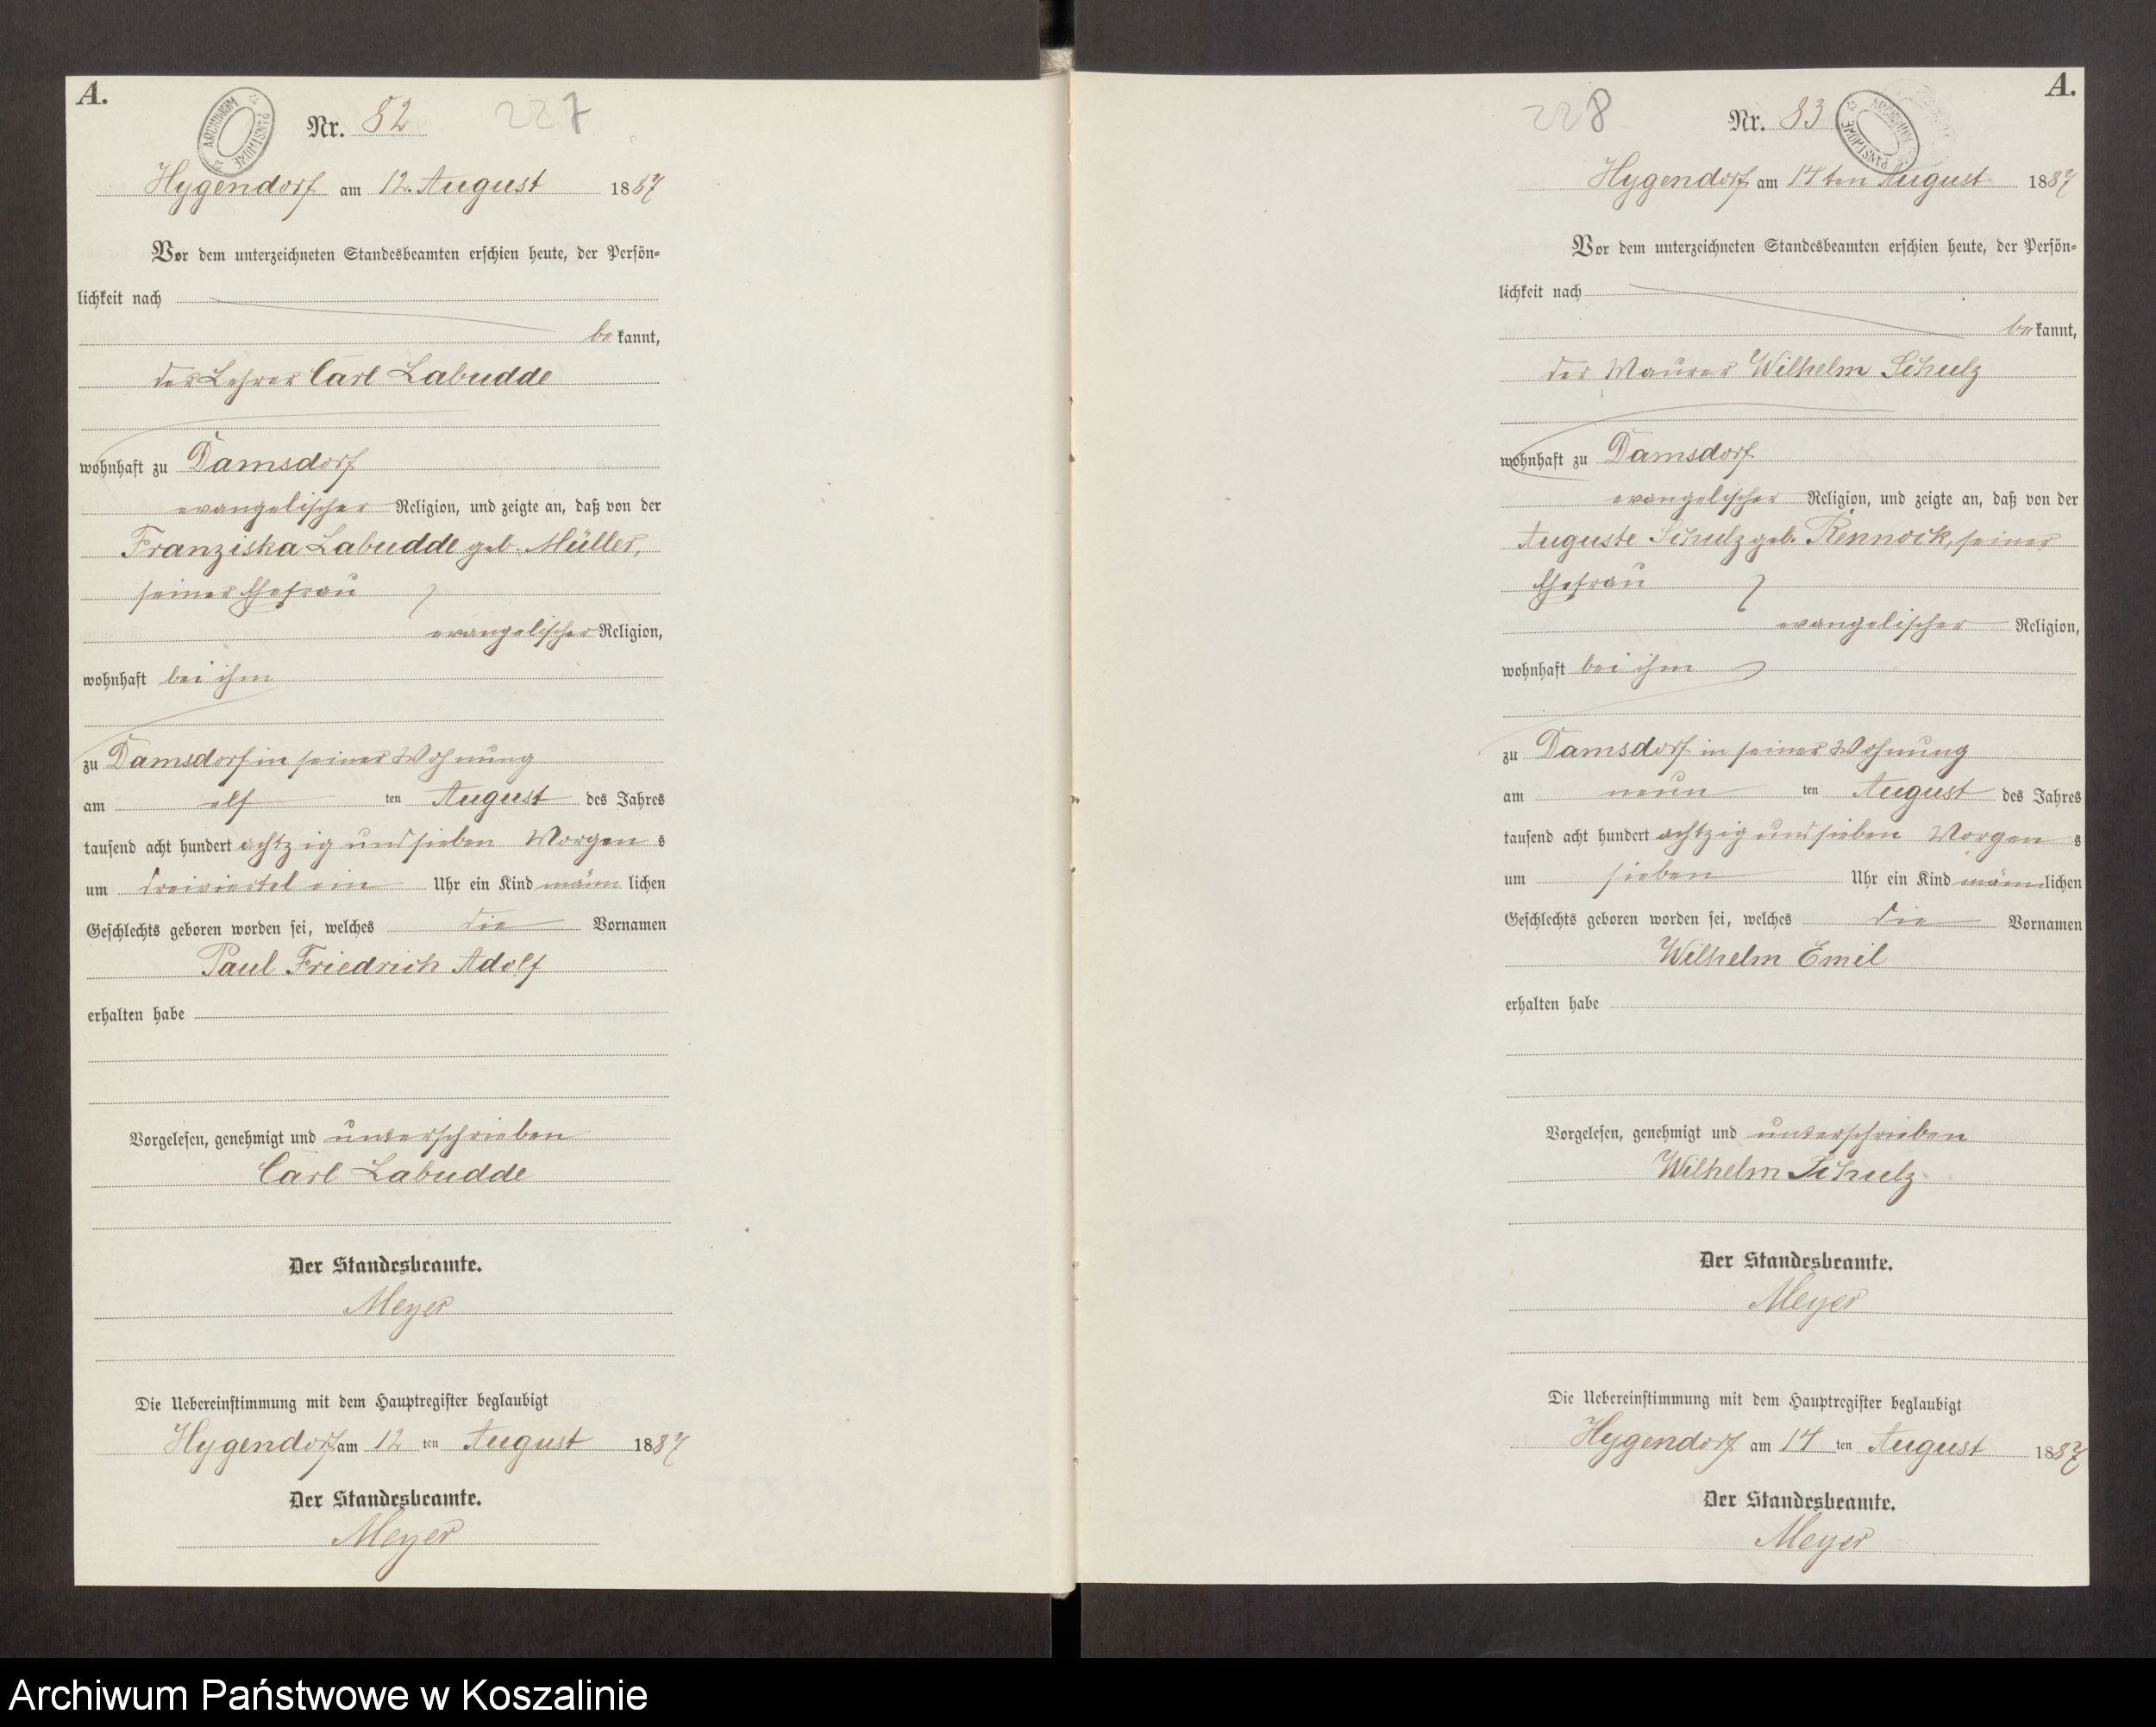 A.
ARCHIWUM PAŃSTWOWE
Nr. 82
227
Hygendorf am 12. August 1887
Vor dem unterzeichneten Standesbeamten erschien heute, der Persön-
lichkeit nach
bekannt,
der Lehrer Carl Labudde
wohnhaft zu Damsdorf
evangelischer Religion, und zeigte an, daß von der
Franziska Labudde geb. Müller,
seiner Ehefrau
evangelischer Religion,
wohnhaft bei ihm
zu Damsdorf in seiner Wohnung
am elf ten August des Jahres
tausend acht hundert achtzig und sieben Morgens
um dreiviertel ein Uhr ein Kind männlichen
Geschlechts geboren worden sei, welches die Vornamen
Paul Friedrich Adolf
erhalten habe
Vorgelesen, genehmigt und unterschrieben
Carl Labudde
Der Standesbeamte.
Meyer
Die Uebereinstimmung mit dem Hauptregister beglaubigt
Hygendorf am 12 ten August 1887
Der Standesbeamte.
Meyer
A.
228
Nr. 83
ARCHIWUM PAŃSTWOWE
Hygendorf am 14ten August 1887
Vor dem unterzeichneten Standesbeamten erschien heute, der Persön-
lichkeit nach
bekannt,
der Maurer Wilhelm Schulz
wohnhaft zu Damsdorf
evangelischer Religion, und zeigte an, daß von der
Auguste Schulz geb. Rennock, seiner
Ehefrau
evangelischer Religion,
wohnhaft bei ihm
zu Damsdorf in seiner Wohnung
am neun ten August des Jahres
tausend acht hundert achtzig und sieben Morgens
um sieben Uhr ein Kind männlichen
Geschlechts geboren worden sei, welches die Vornamen
Wilhelm Emil
erhalten habe
Vorgelesen, genehmigt und unterschrieben
Wilhelm Schulz
Der Standesbeamte.
Meyer
Die Uebereinstimmung mit dem Hauptregister beglaubigt
Hygendorf am 14 ten August 1887
Der Standesbeamte.
Meyer
Archiwum Państwowe w Koszalinie